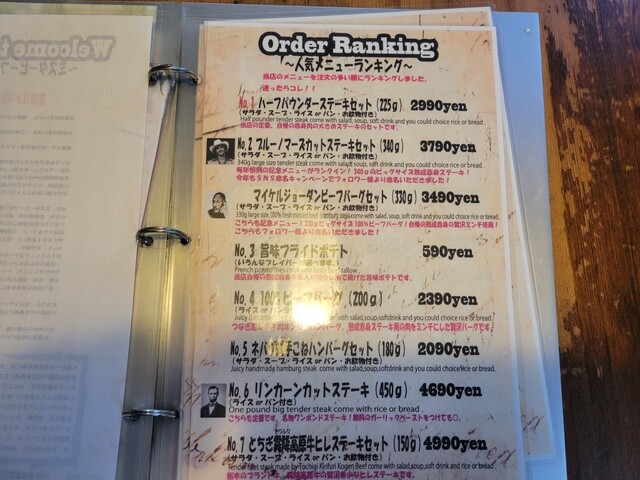 Welcome to
ミスタービーフ
Order Ranking
～人気メニューランキング～
当店のメニューを注文の多い順にランキングしました。
迷ったらコレ！！
No. 1 ハーフパウンダーステーキセット (225g) 2990yen
(サラダ・スープ・ライス or パン・お飲物付き)
Half pounder tender steak come with salad, soup, soft drink and you could choice rice or bread.
当店の定番、自慢の赤身肉の大きめステーキのセットです。
No. 2 ブルーノマーズカットステーキセット (340g) 3790yen
(サラダ・スープ・ライス or パン・お飲物付き)
340g large size tender steak come with salad, soup, soft drink and you could choice rice or bread.
毎年恒例の記念メニューがランクイン！340gのビッグサイズ熟成赤身ステーキ！
今年もSNS命名キャンペーンでフォロワー様より命名いただきました！
マイケルジョーダンビーフバーグセット (330g) 3490yen
(サラダ・スープ・ライス or パン・お飲物付き)
330g large size 100% fresh minced beef hamburg steak come with salad, soup, soft drink and you could choice rice or bread.
こちらも記念メニュー！330gビッグサイズ100%ビーフバーグ！自慢の熟成赤身の贅沢ミンチ使用！
こちらもフォロワー様より命名いただきました！
No. 3 旨味フライドポテト 590yen
(いろんなフレイバーが選べます。)
French potato fries cook with tasty beef tallow.
当店自慢の熟成 で揚げた旨味ポテトです。
No. 4 100%ビーフバーグ (200g) 2390yen
(サラダ・スープ・ライス or パン・お飲物付き)
Juicy hand with salad,soup,softdrink and you could choice rice or bread.
つなぎ バーグ、熟成赤身ステーキ用の肉をミンチにした贅沢バーグです。
No. 5 ネバ 手こねハンバーグセット (180g) 2090yen
(サラダ・スープ・ライス or パン・お飲物付き)
Juicy handmady hamburg steak come with salad,soup,softdrink and you could choice rice or bread.
No. 6 リンカーンカットステーキ (450g) 4690yen
(ライス or パン付き)
One pound big tender steak come with rice or bread.
こちらも定番です。名物ワンポンドステーキ！無料のガーリックペーストをつけても◎。
No. 7 とちぎ霧降高原牛ヒレステーキセット (150g) 4990yen
(サラダ・スープ・ライス or パン・お飲物付き)
Tender fillet steak made by Tochigi Kirifuri Kogen Beef come with salad,soup,softdrink and you could choice rice or bread.
栃木のブランド牛、霧降高原牛の贅沢な赤身ヒレステーキです。